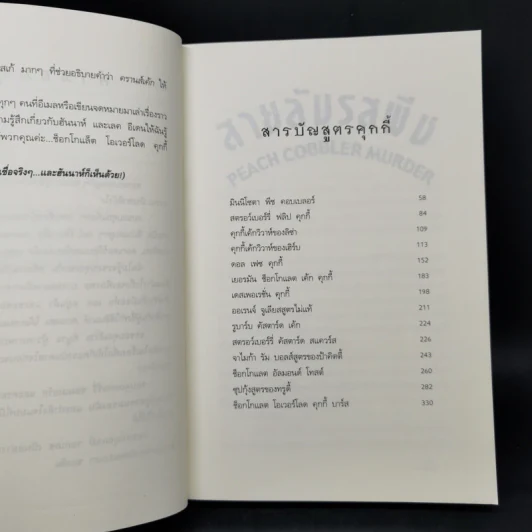 สเก้ มากๆ ที่ช่วยอธิบายคำว่า ตรานส์เค้ก ให้
ทุกๆ คนที่อีเมลหรือเขียนจดหมายมาเล่าเรื่องราว
ามรู้สึกเกี่ยวกับฮันนาห์ และเลด อีเดนให้ฉันรู้
พวกคุณค่ะ...ช็อกโกแล็ต โอเวอร์โลด คุกกี้
เชื่อจริงๆ...และฮันนาห์ก็เห็นด้วย!)
PEACH COBBLER MURDER
สารบัญสูตรคุกกี้
มินนิโซตา พีช คอบเบลอร์ 58
สตรอว์เบอร์รี่ ฟลิป คุกกี้ 84
คุกกี้เค้กวิวาห์ของลิซ่า 109
คุกกี้เค้กวิวาห์ของเฮิร์บ 113
ดอล เฟซ คุกกี้ 152
เยอรมัน ช็อกโกแลต เค้ก คุกกี้ 183
เดสเพอเรชั่น คุกกี้ 198
ออเรนจ์ จูเลียสสูตรไม่แท้ 211
รูบาร์บ คัสตาร์ด เค้ก 224
สตรอว์เบอร์รี่ คัสตาร์ด สแควร์ส 226
จาไมก้า รัม บอลส์สูตรของป้าคิตตี้ 243
ช็อกโกแลต อัลมอนด์ โทสต์ 260
ซุปกุ้งสูตรของทรูดี้ 282
ช็อกโกแลต โอเวอร์โลด คุกกี้ บาร์ส 330